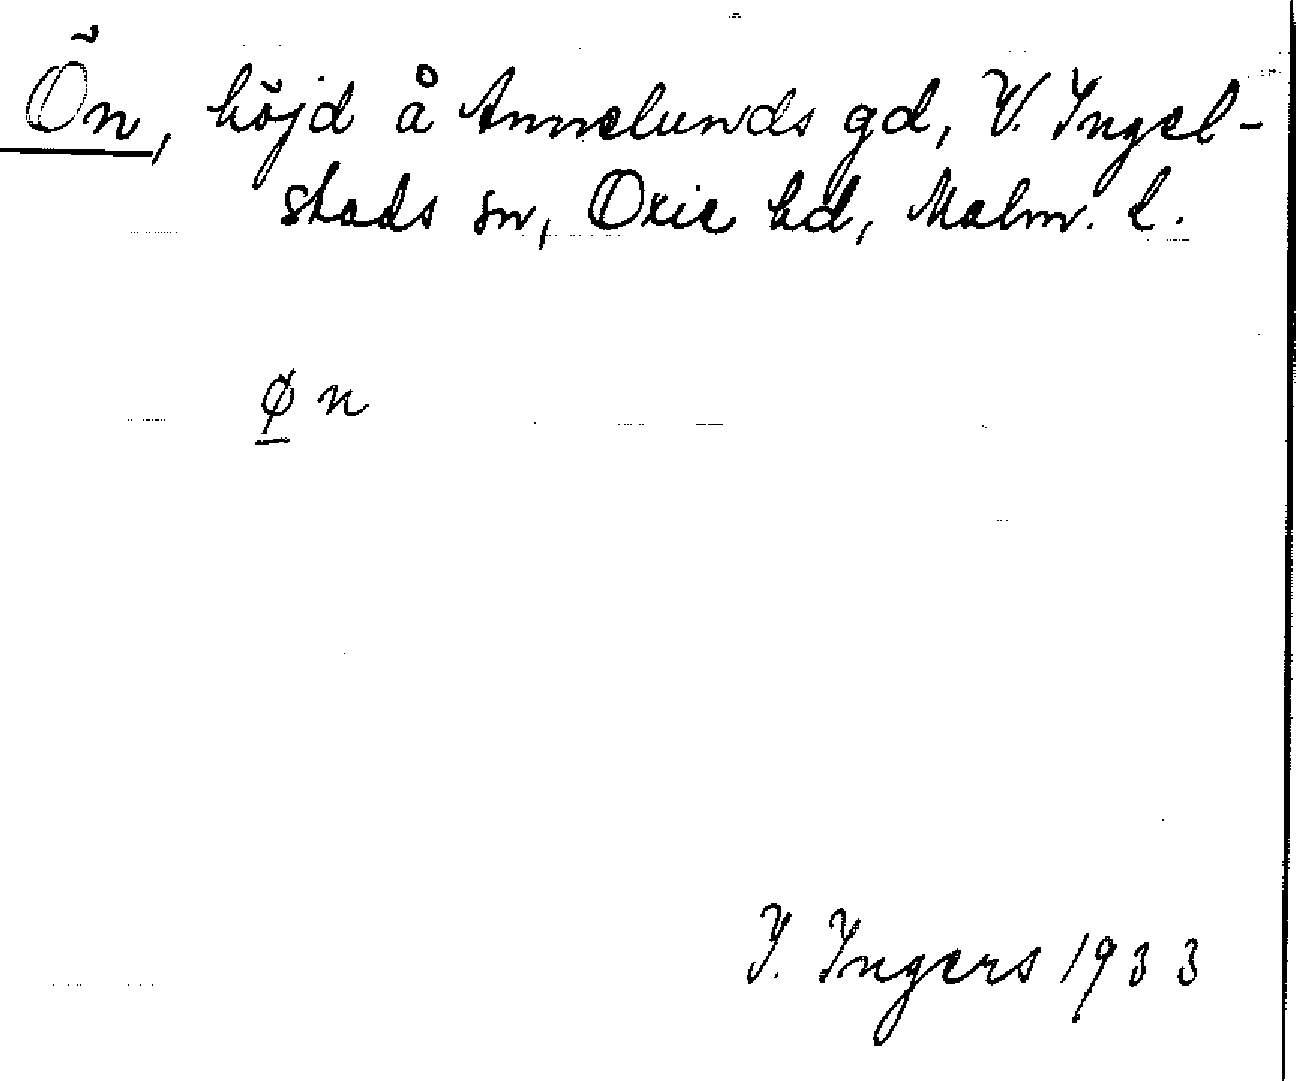 Ön, höjd å Annelunds gd, V. Ingel-
stads sn, Oxie hd, Malm. l.
ø̲ n
I. Ingers 1933